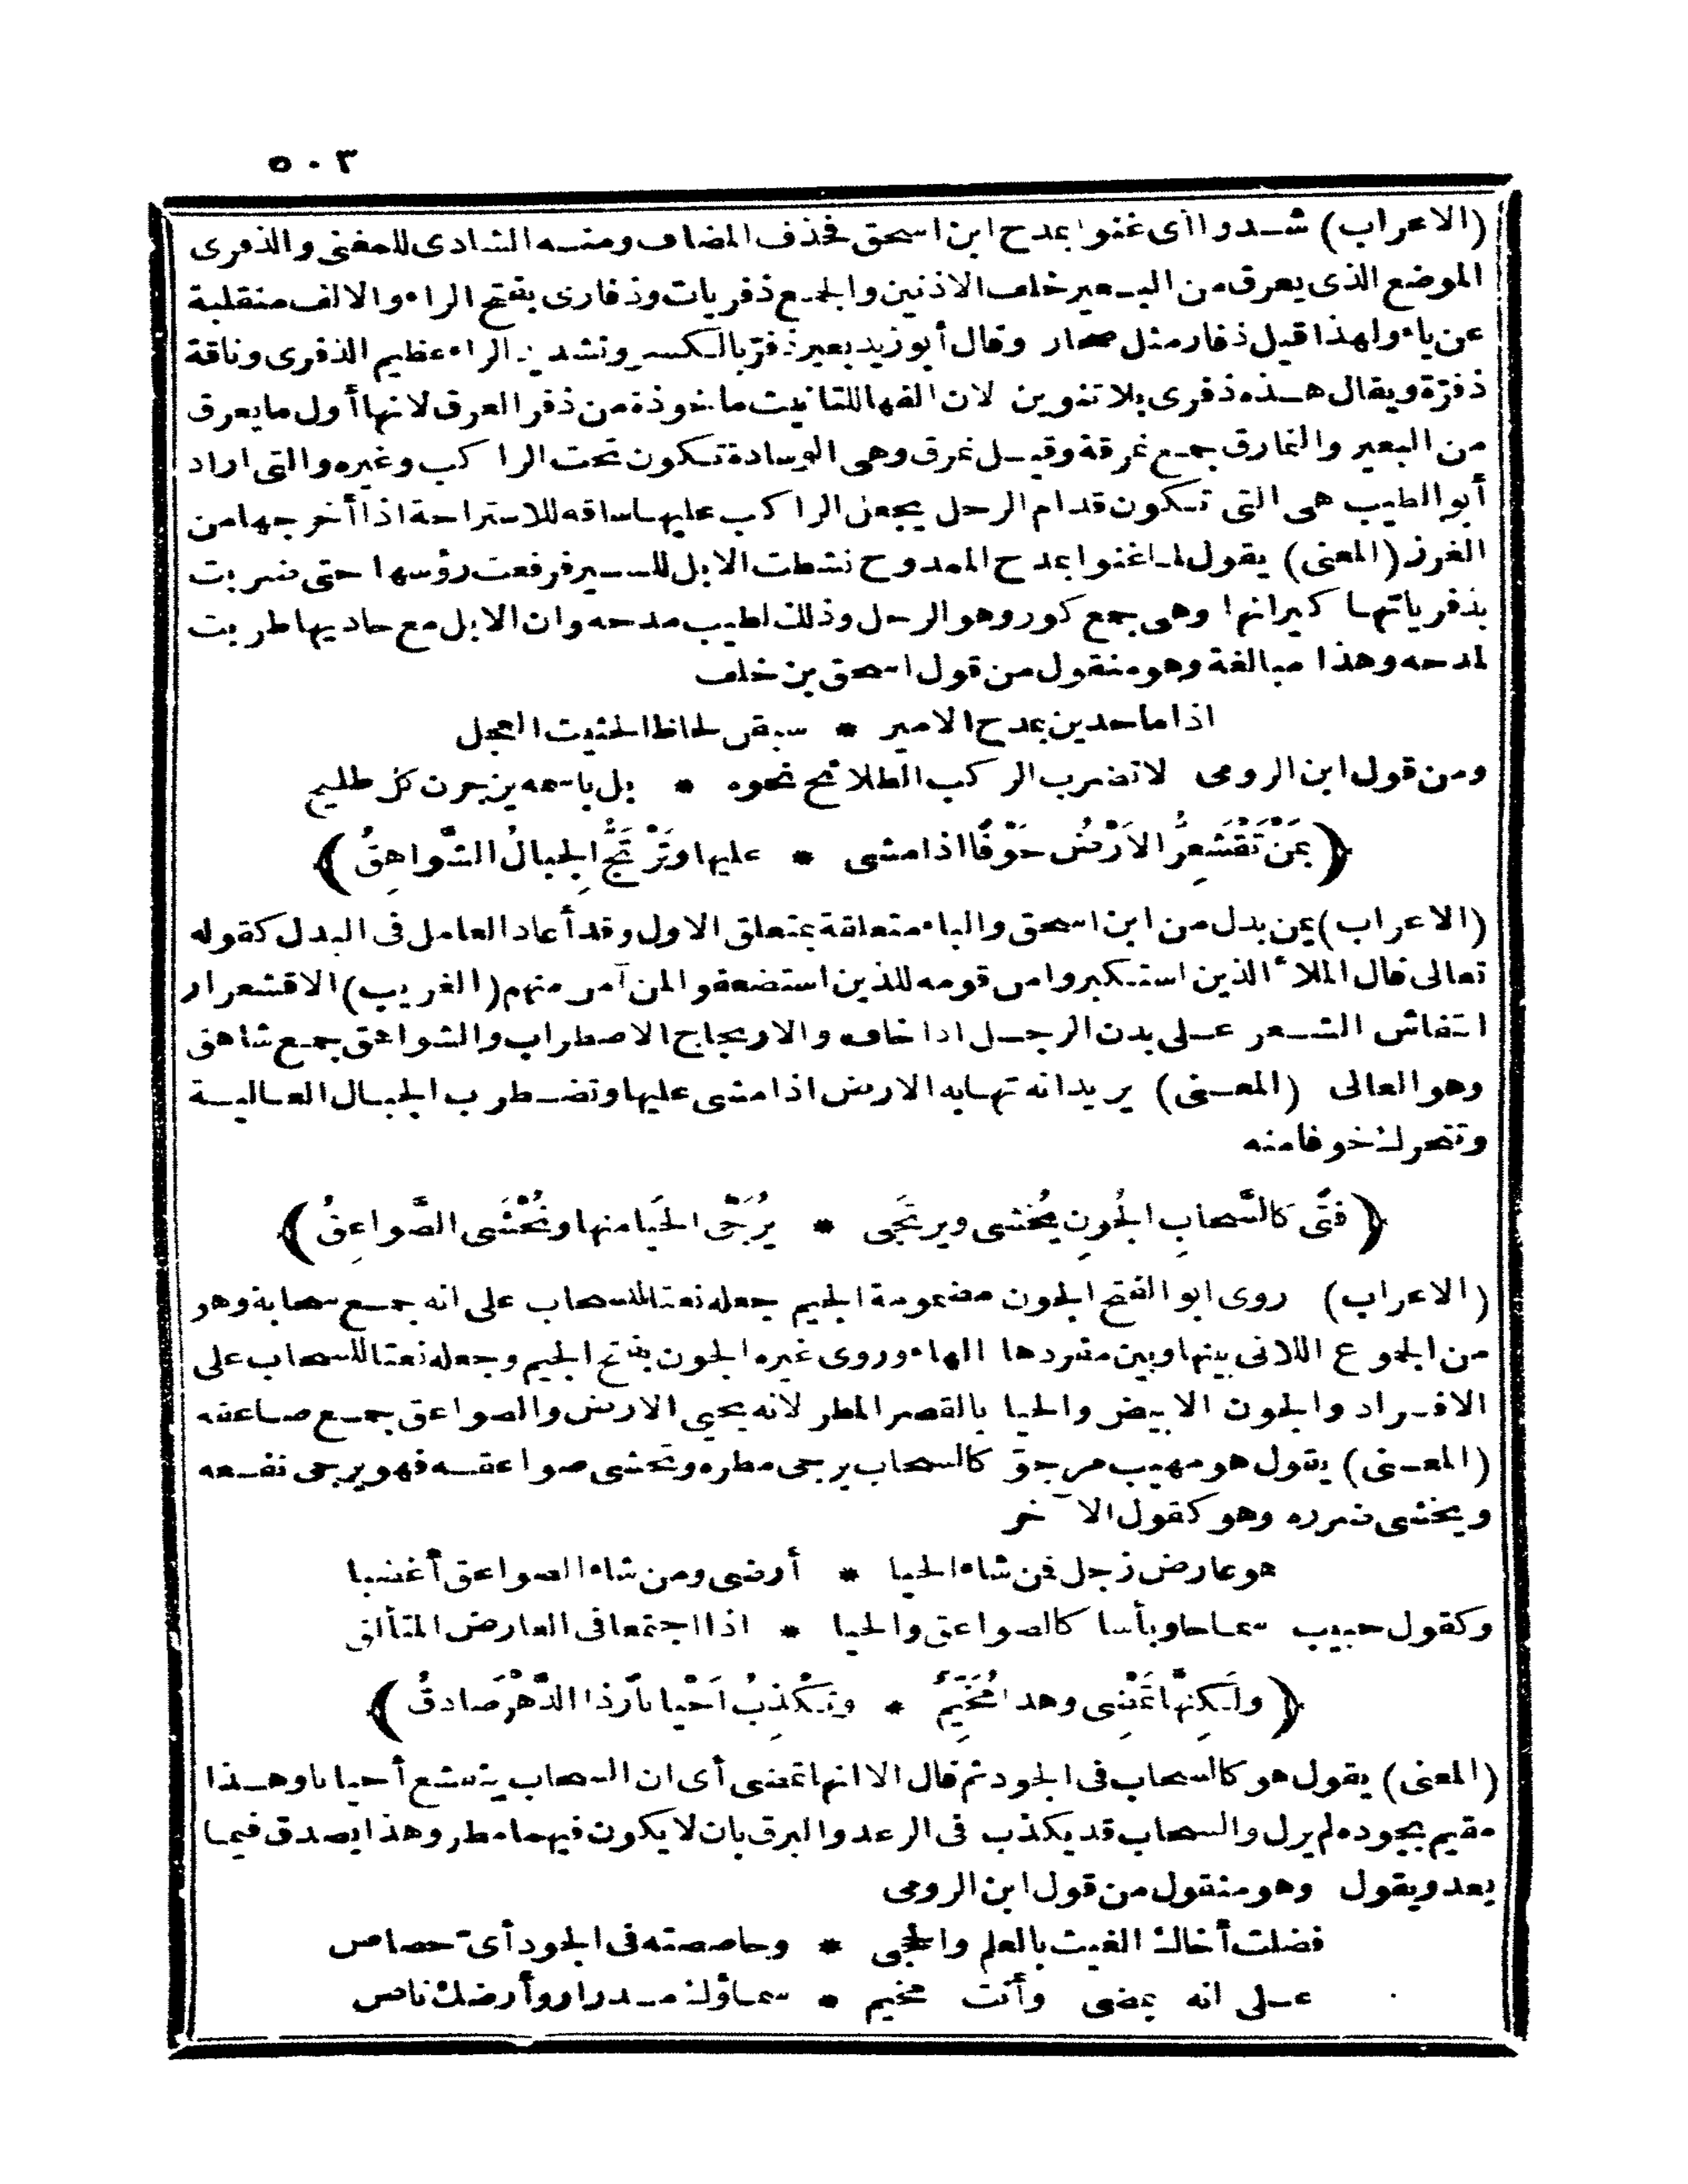 ٥٠٣
(الاعراب) شدوا أى غنوا بمدح ابن اسحق فحذف المضاف ومنه الشادى للمغنى والذفرى
الموضع الذى يعرق من البعير خلف الاذنين والجمع ذفريات وذفارى بفتح الراء والالف منقلبة
عن ياء ولهذا قيل ذفار مثل صحار وقال أبو زيد بعير ذفرّ بالكسر وتشديد الراء عظيم الذفرى وناقة
ذفرّة ويقال هذه ذفرى بلا تنوين لان الفها للتانيث ماخوذة من ذفر العرق لانها أول ما يعرق
من البعير والنمارق جمع نمرقة وقيل نمرق وهى الوسادة تكون تحت الراكب وغيره والتى اراد
أبو الطيب هى التى تكون قدام الرحل يجعل الراكب عليها ساقه للاستراحة اذا أخرجها من
الغرز (المعنى) يقول لما غنوا بمدح الممدوح نشطت الابل للسير فرفعت رؤسها حتى ضربت
بذفرياتها كيرانها وهى جمع كور وهو الرحل وذلك لطيب مدحه وان الابل مع حاديها طربت
لمدحه وهذا مبالغة وهو منقول من قول اسحق بن خلف
اذا ما حدين بمدح الامير * سبقن لحاظ الحثيث العجل
ومن قول ابن الرومى لا تضرب الركب الطلائح نحوه * بل باسمه يزجرن كل طليح
﴿بِمَنْ تَقْشَعِرُّ الاَرْضُ خَوْفًا اذا مشى * عليها وتَرْتَجُّ الجِبالُ الشَّواهِقُ﴾
(الاعراب) بمن بدل من ابن اسحق والباء متعلقة بمتعلق الاول وقد أعاد العامل فى البدل كقوله
تعالى قال الملأ الذين استكبروا من قومه للذين استضعفوا لمن آمن منهم (الغريب) الاقشعرار
انتفاش الشعر على بدن الرجل اذا خاف والارتجاج الاضطراب والشواهق جمع شاهق
وهو العالى (المعنى) يريد انه تهابه الارض اذا مشى عليها وتضطرب الجبال العالية
وتتحرك خوفا منه
﴿فتًى كالسَّحابِ الجُونِ يُخْشى ويرتَجى * يُرَجَّى الحَيا منها وتُخْشَى الصَّواعِقُ﴾
(الاعراب) روى ابو الفتح الجون مضمومة الجيم جعله نعتا للسحاب على انه جمع سحابة وهو
من الجموع اللاتى بينها وبين مفردها الهاء وروى غيره الجون بفتح الجيم وجعله نعتا للسحاب على
الافراد والجون الابيض والحيا بالقصر المطر لانه يحيى الارض والصواعق جمع صاعقه
(المعنى) يقول هو مهيب مرجوّ كالسحاب يرجى مطره وتخشى صواعقه فهو يرجى نفعه
ويخشى ضرره وهو كقول الآخر
هو عارض زجل فمن شاء الحيا * أرضى ومن شاء الصواعق أغضبا
وكقول حبيب سماحا وبأسا كالصواعق والحيا * اذا اجتمعا فى العارض المتألق
﴿ولَكِنَّها تَمْضِى وهذا مُخَيِّمٌ * وتَكْذِبُ اَحْيانًا وذا الدَّهْرَ صادقُ﴾
(المعنى) يقول هو كالسحاب فى الجود ثم قال الا انها تمضى أى ان السحاب يتقشع أحيانا وهذا
مقيم بجوده لم يزل والسحاب قد يكذب فى الرعد والبرق بان لا يكون فيهما مطر وهذا يصدق فيما
يعد ويقول وهو منقول من قول ابن الرومى
فضلت أخاك الغيث بالعلم والحجى * وحاصصته فى الجود أىّ حصاص
على انه يمضى وأنت مخيم * سماؤك مدرار وأرضك ناص